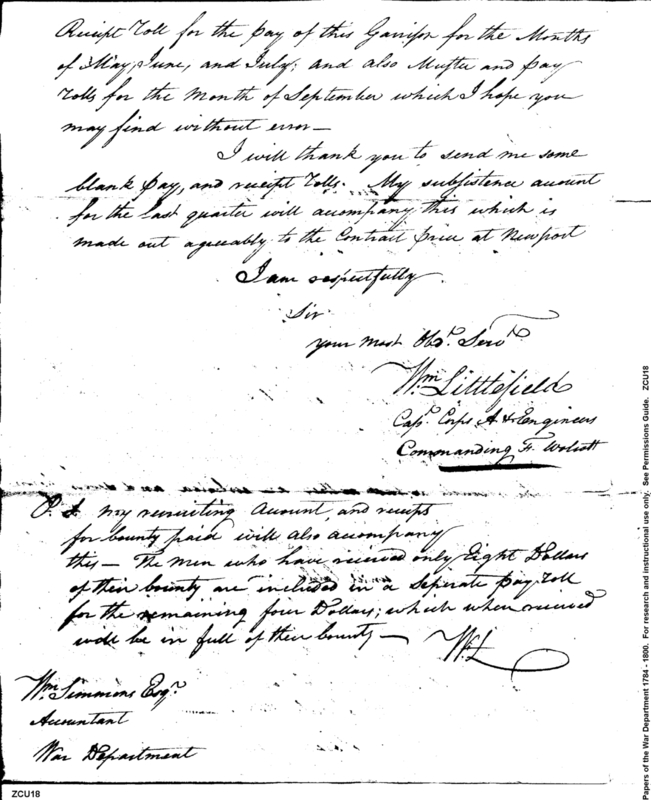 Receipt Roll for the Pay of this Garrison for the Months
of May, June, and July; and also Muster and Pay
Rolls for the Month of September which I hope you
may find without error—
I will thank you to send me some
blank Pay, and receipt Rolls. My subsistence account
for the last quarter will acompany this which is
made out agreeably to the Contract Price at Newport
I am respectfully
Sir
your most Obd.t Serv.t
Wm Littlefield
Capt. Corps A & Engineers
Commanding Ft. Wolcott
P. S my recruiting Account, and receipts
for bounty paid will also acompany
this— The men who have received only Eight Dollars
of their bounty are included in a Seperate Pay Roll
for the remaining four Dollars; which when received
will be in full of their bounty— WL
Wm Simmons Esqr.
Accountant
War Department
ZCU18
Papers of the War Department 1784 - 1800. For research and instructional use only. See Permissions Guide. ZCU18